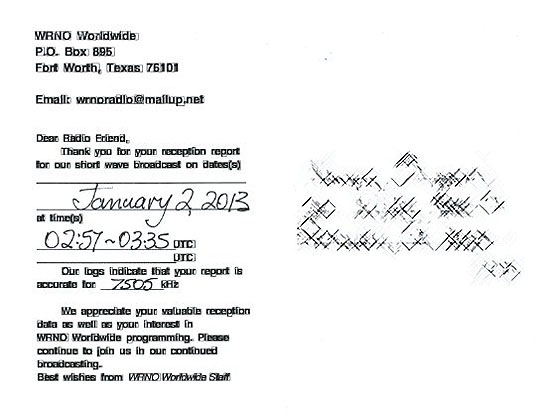 WRNO Worldwide
P.O. Box 895
Fort Worth, Texas 76101
Email: wrnoradio@mailup.net
Dear Radio Friend,
Thank you for your reception report
for our short wave broadcast on dates(s)
January 2, 2013
at time(s)
02:57~03:35 UTC
UTC
Our logs indicate that your report is
accurate for 7505 kHz
We appreciate your valuable reception
data as well as your interest in
WRNO Worldwide programming. Please
continue to join us in our continued
broadcasting.
Best wishes from WRNO Worldwide Staff